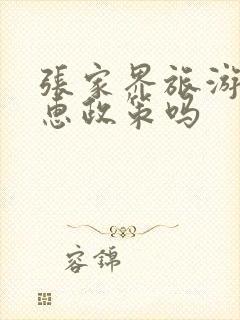 張家界旅游
惠政策吗
容錦